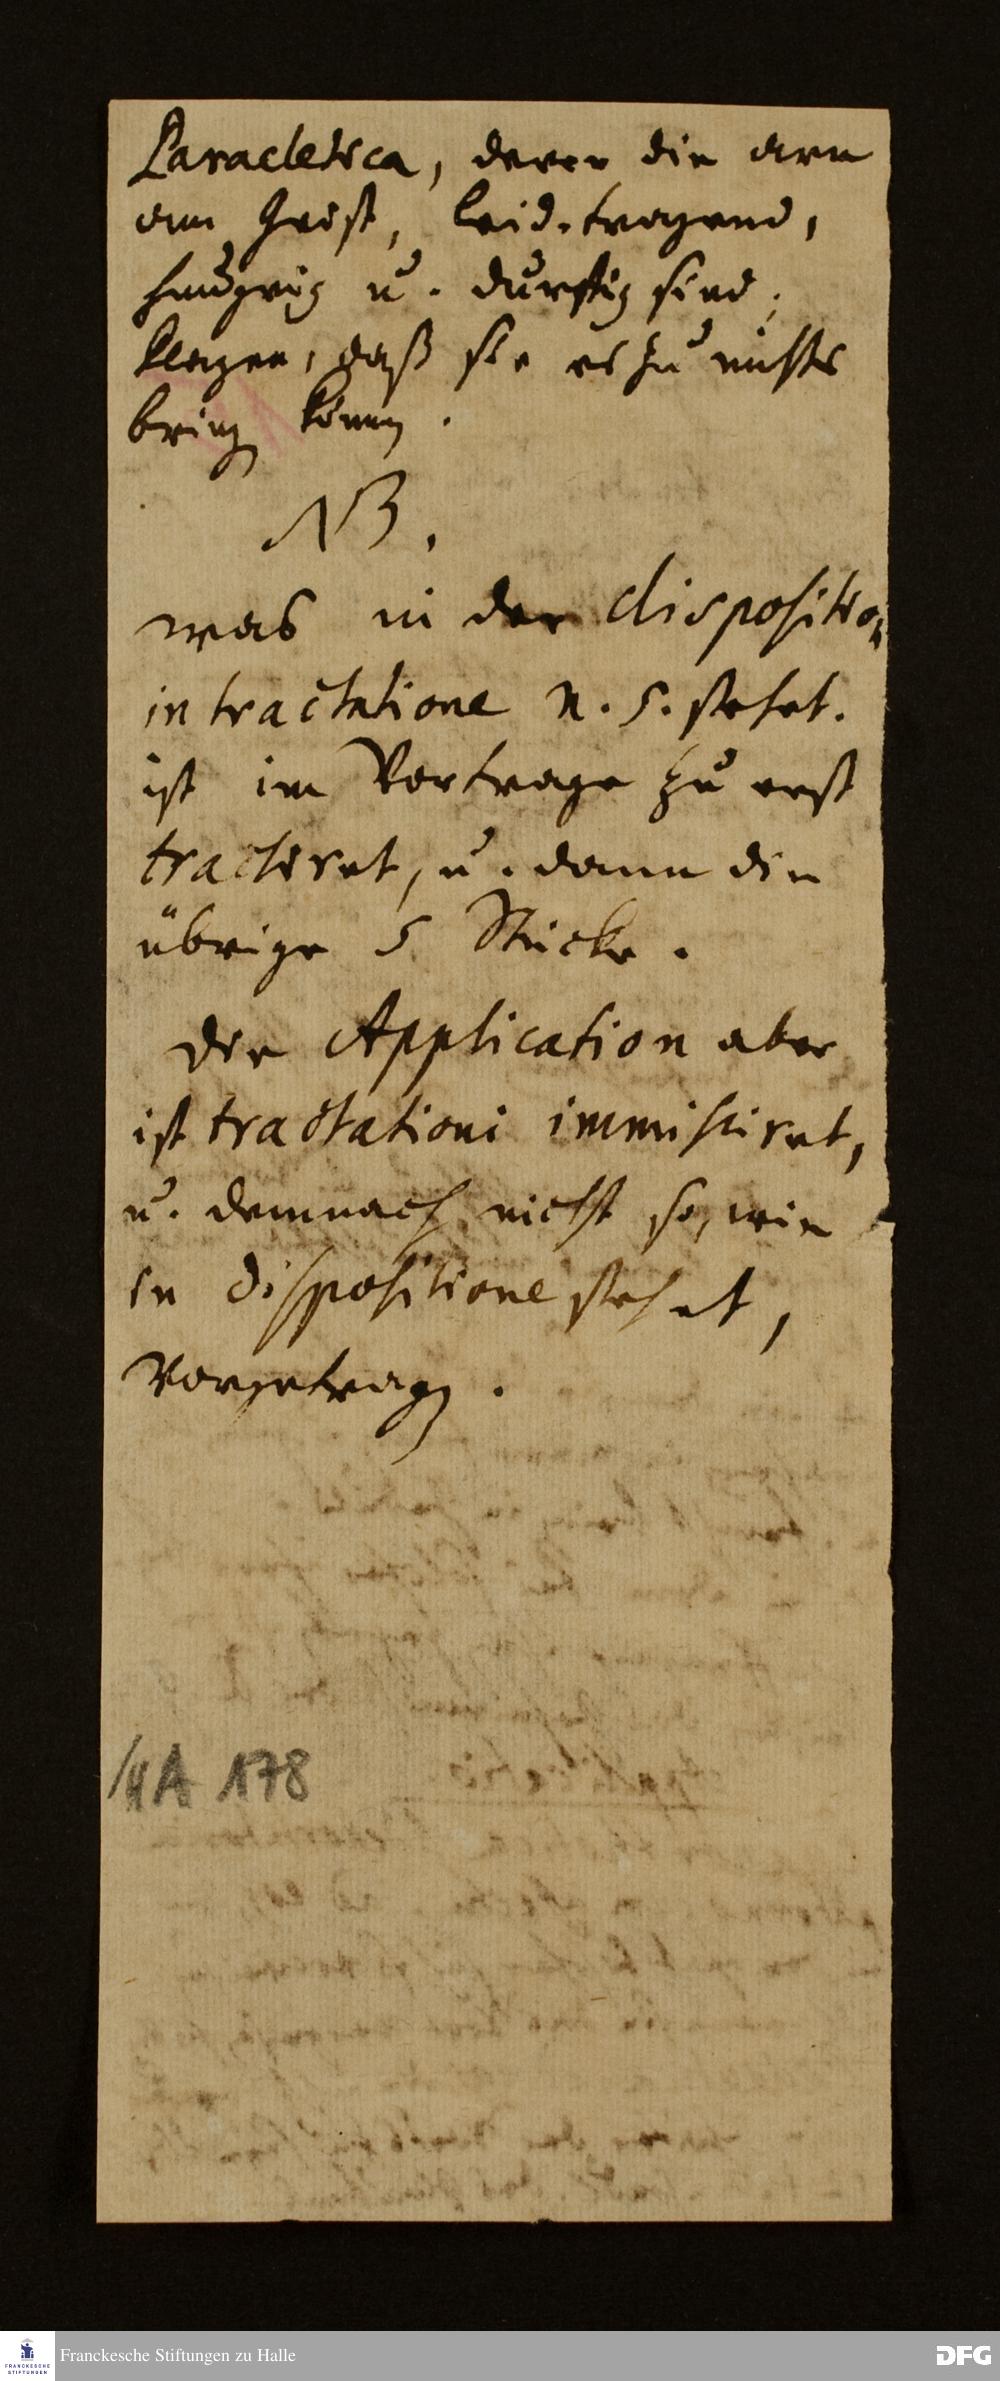 Paracletica, derer die arm
am Geist, leid-tragend,
hungrig u. durstig sind,
klagen, daß sie es zu nichts
bring können.
NB.
was in der disposition
in tractatione n. 5. stehet.
ist im Vortrage zu erst
tractiret, u. dann die
übrige 5 Stücke.
Die Application aber
ist tractationi immisciret,
u. demnach nicht so, wie
in dispositione stehet,
Vorgetragen.
A 178
Franckesche Stiftungen zu Halle
FRANCKESCHE
STIFTUNGEN
DFG